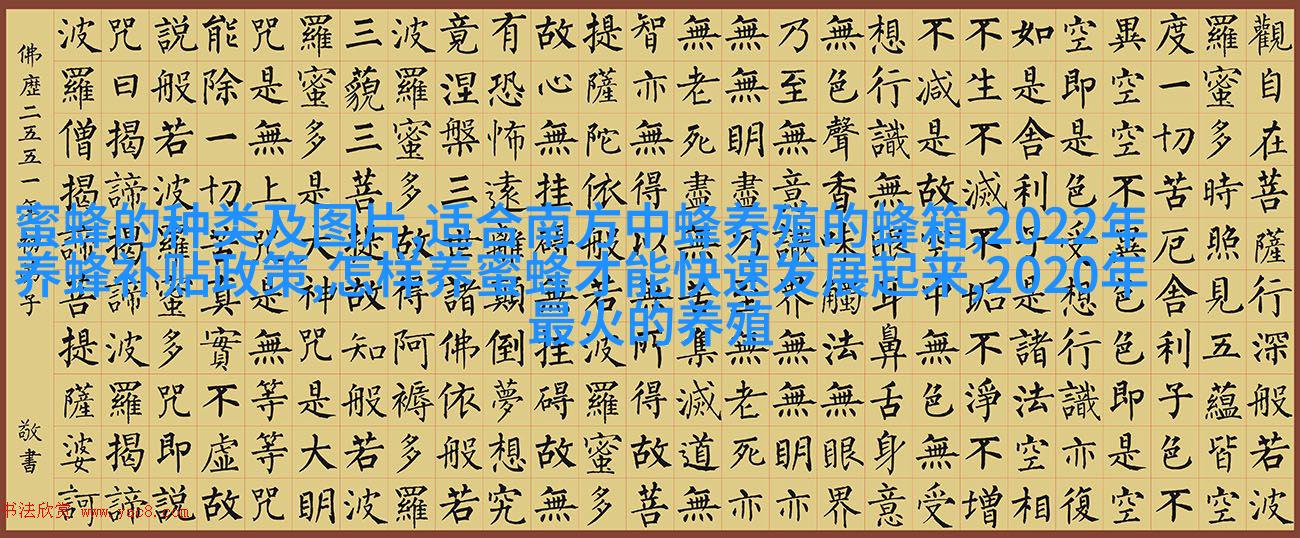 觀自在菩薩行深般若波
羅蜜多時照見五蘊皆空
度一切苦厄舍利子色不
異空空不異色色即是空
空即是色受想行識亦復
如是舍利子是諸法空相
不生不滅不垢不淨不增
不減是故空中無色無受
想行識無眼耳鼻舌身意
無色聲香味觸法無眼界
乃至無意界無無明亦
無無明盡乃至無老死亦
無老死盡無苦集滅道無
智亦無得以無所得故菩
提薩陀依般若波羅蜜多
故心無挂礙無挂礙故無
有恐怖遠離顛倒夢想究
竟涅槃三世諸佛依般若
波羅蜜多故得阿褥多羅
三藐三菩提故知般若波
羅蜜多是大神咒是大明
咒是無上咒是無等等咒
能除一切苦真實不虛故
說般若波羅蜜多咒即說
咒曰揭諦揭諦波羅揭諦
波羅僧揭諦菩提薩婆訶
佛歷二五五一年
子
敬書
蜜蜂的种类及图片,适合南方中蜂养殖的蜂箱,2022年
养蜂补贴政策,怎样养蜜蜂才能快速发展起来,2020年
最火的养殖
书法欣赏 www.yac8.com